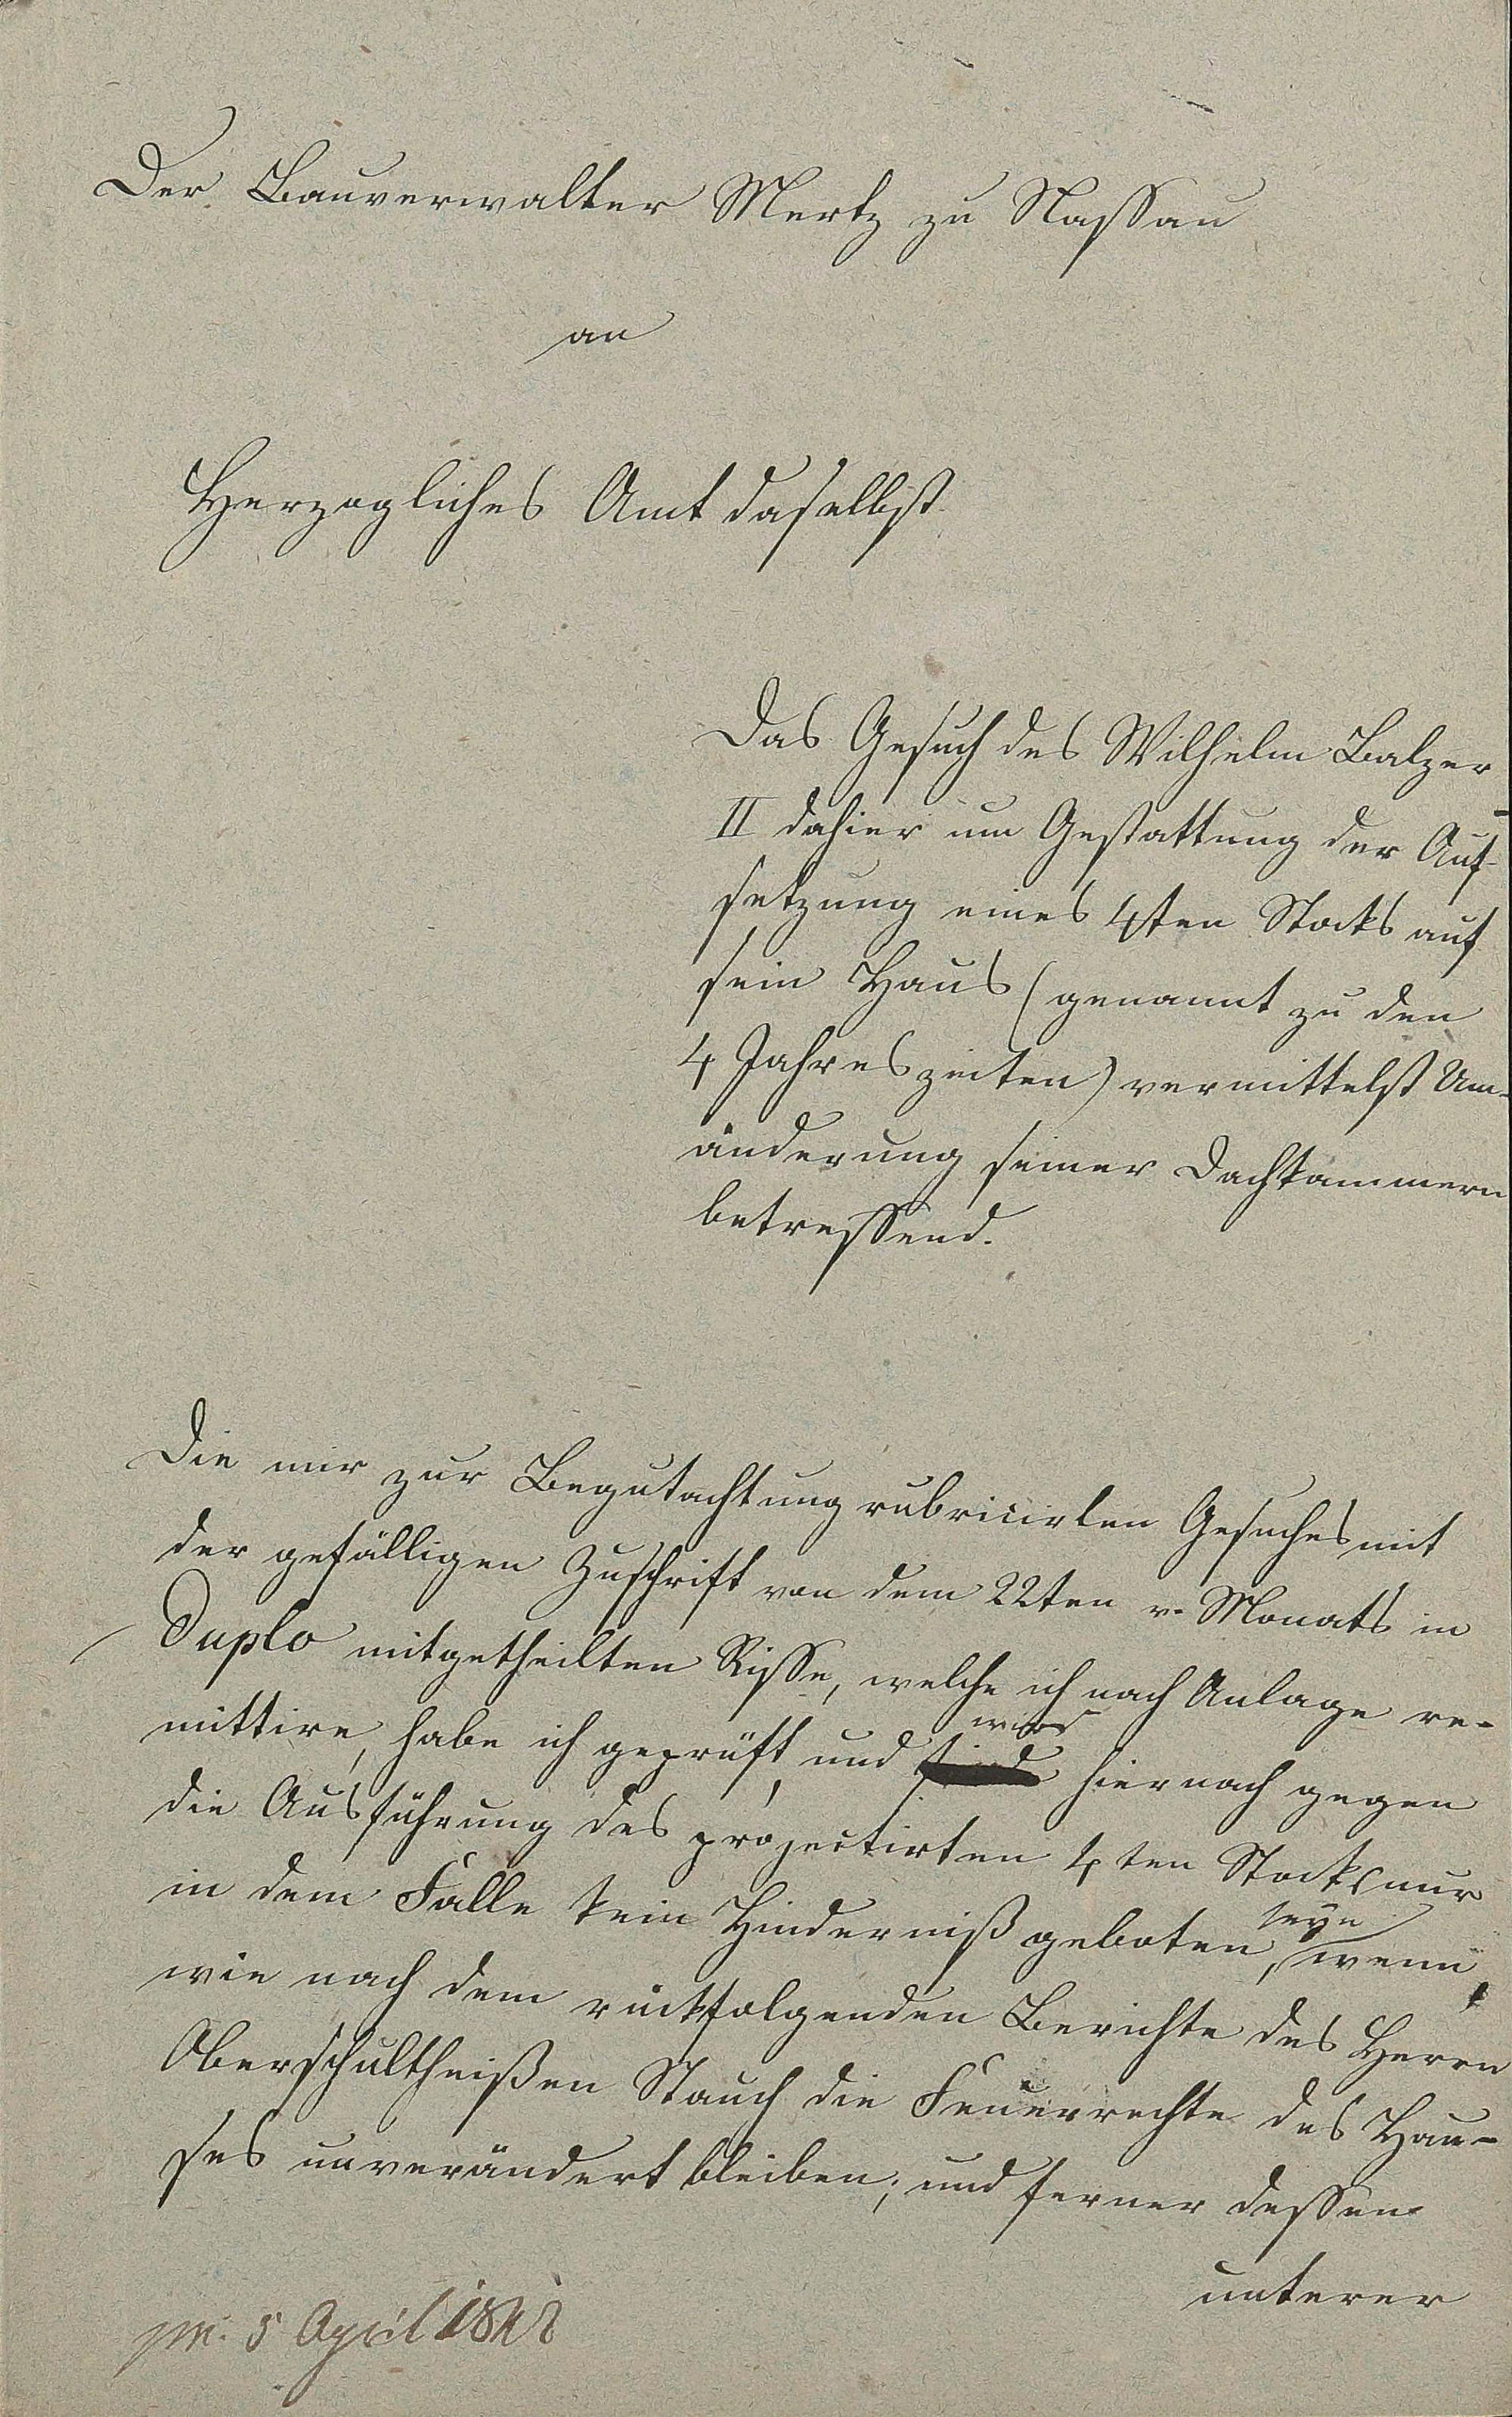 Der Bauverwalter Mertz zu Nassau
an
Herzogliches Amt daselbst
Das Gesuch des Wilhelm Balzer
II dahier um Gestattung der Auf-
setzung eines 4ten Stocks auf
sein Haus (genannt zu den
4 Jahreszeiten) vermittelst Um-
änderung seiner Dachkammern
betreffend.
Die mir zur Begutachtung rubricirten Gesuches mit
der gefälligen Zuschrift von dem 22ten v. Monats in
Duplo mitgetheilten Risse, welche ich nach Anlage re-
mittire, habe ich geprüft, und wird hiernach gegen
die Ausführung des projectirten 4ten Stocks nur
in dem Falle kein Hinderniß geboten seyn, wenn,
wie nach dem rückfolgenden Berichte des Herrn
Oberschultheißen Stauch die Feuerrechte des Hau-
ses unverändert bleiben; und ferner dessen
unterer
pr. 5 April